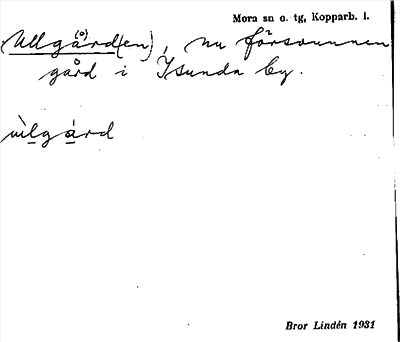 Mora sn o. tg, Kopparb. l.
Ullg(å)ård(en), nu försvunnen
gård i Isunda by.
ùlgárd
Bror Lindén 1931